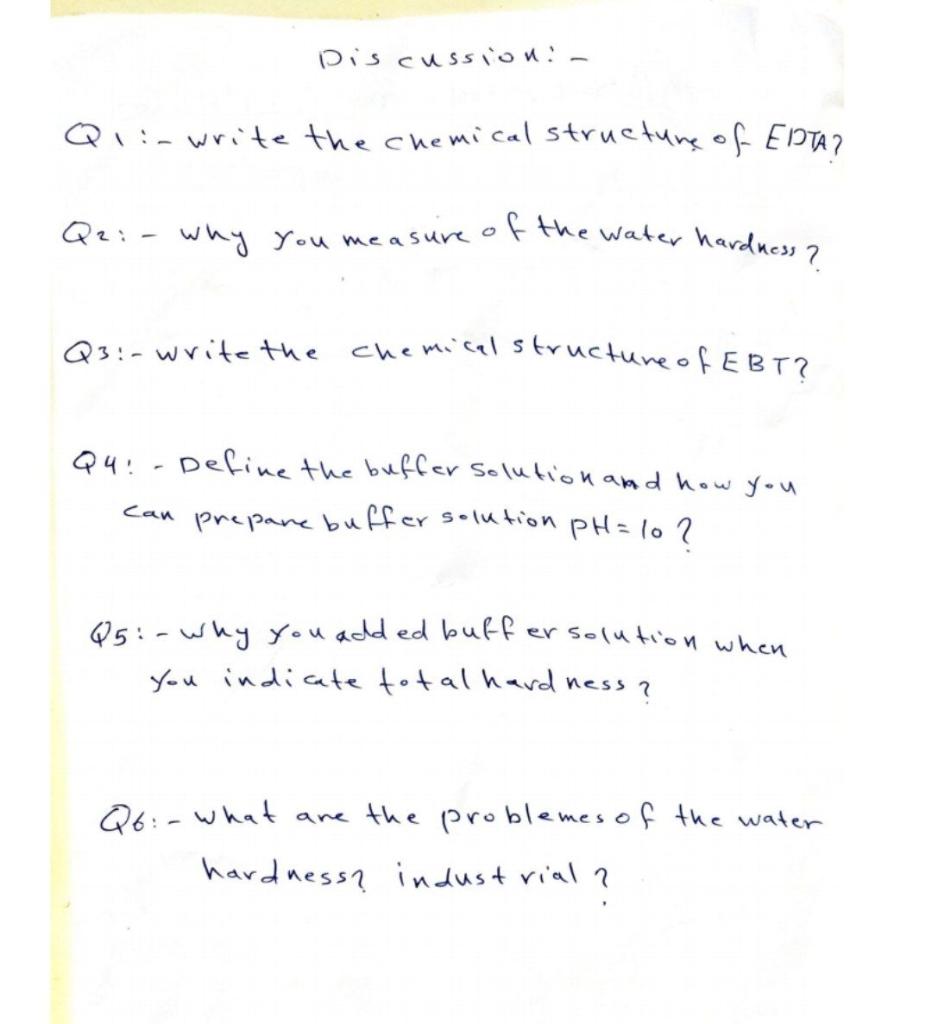 Discussion:-
Q1:- write the chemical structure of EDTA?
Q2:- why you measure of the water hardness?
Q3:- write the chemical structure of EBT?
Q4:- Define the buffer solution and how you
can prepare buffer solution pH=10?
Q5:- why you added buffer solution when
you indicate total hardness?
Q6:- what are the problemes of the water
hardness? industrial?